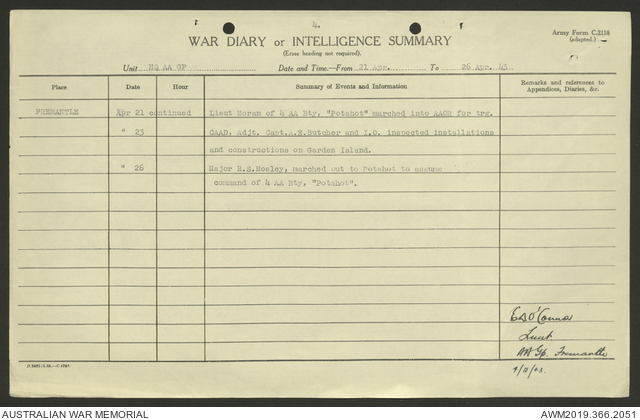 4.
WAR DIARY or INTELLIGENCE SUMMARY
Army Form C.2118
(adapted.)
(Erase heading not required).
Unit HQ AA GP Date and Time.—From 21 Apr. To 26 Apr. 43.
Place Date Hour Summary of Events and Information Remarks and references to
Appendices, Diaries, &c.
FREMANTLE Apr 21 continued Lieut Moran of 4 AA Bty, "Potshot" marched into AAOR for trg.
" 23 CAAD, Adjt. Capt.A.E.Butcher and I.O. inspected installations
and constructions on Garden Island.
" 26 Major R.S.Mosley, marched out to Potshot to assume
command of 4 AA Bty, "Potshot".
O'Connor
Lieut
AA Gp. Fremantle
AUSTRALIAN WAR MEMORIAL AWM2019.366.2051